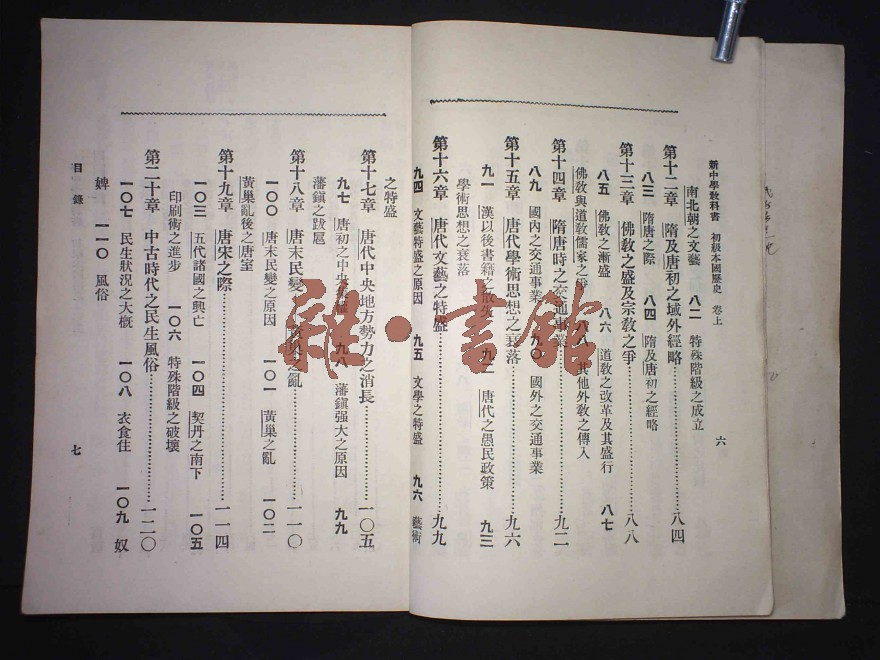 新中學教科書 初級本國歷史 卷上 六
南北朝之文藝 八二 特殊階級之成立
第十二章 隋及唐初之域外經略 八四
八三 隋唐之際 八四 隋及唐初之經略
第十三章 佛敎之盛及宗敎之爭 八八
八五 佛敎之漸盛 八六 道敎之改革及其盛行 八七
佛敎與道敎儒家之爭 八八 其他外敎之傳入
第十四章 隋唐時之交通事業 九二
八九 國內之交通事業 九〇 國外之交通事業
第十五章 唐代學術思想之衰落 九六
九一 漢以後書籍之散失 九二 唐代之愚民政策 九三
學術思想之衰落
第十六章 唐代文藝之特盛 九九
九四 文藝特盛之原因 九五 文學之特盛 九六 藝術
之特盛
第十七章 唐代中央地方勢力之消長 一〇五
九七 唐初之中央 九八 藩鎭强大之原因 九九
藩鎭之跋扈
第十八章 唐末民變 黃巢之亂 一一〇
一〇〇 唐末民變之原因 一〇一 黃巢之亂 一〇二
黃巢亂後之唐室
第十九章 唐宋之際 一一四
一〇三 五代諸國之興亡 一〇四 契丹之南下 一〇五
印刷術之進步 一〇六 特殊階級之破壞
第二十章 中古時代之民生風俗 一二〇
一〇七 民生狀況之大概 一〇八 衣食住 一〇九 奴
婢 一一〇 風俗
目錄 七
雜·書館